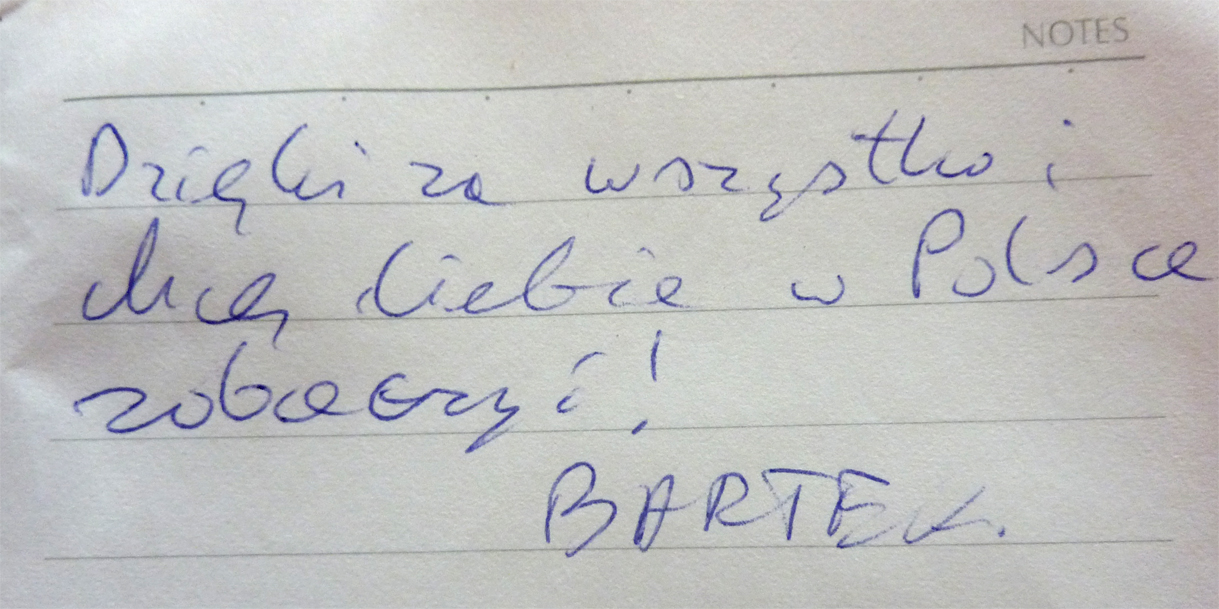 NOTES
Dzięki za wszystko i
chcę Ciebie w Polsce
zobaczyć!
BARTEK.